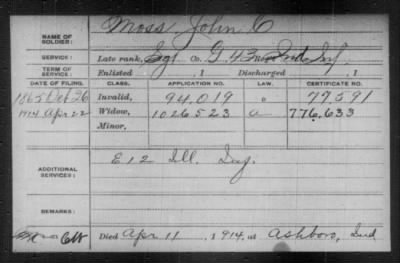 NAME OF SOLDIER: Moss John C
SERVICE: Late rank, Sgt Co. G, 43 Ind Inf.
TERM OF SERVICE: Enlisted , 1 Discharged , 1
DATE OF FILING. CLASS. APPLICATION NO. CERTIFICATE NO.
1865 Oct 26 Invalid, 94,019 77591
1914 Apr 22 Widow, 1026523 a 776.633
Minor,
ADDITIONAL SERVICES: E 12 Ill. Inf.
REMARKS:
Died Apr 11, 1914, at Ashboro, Ind